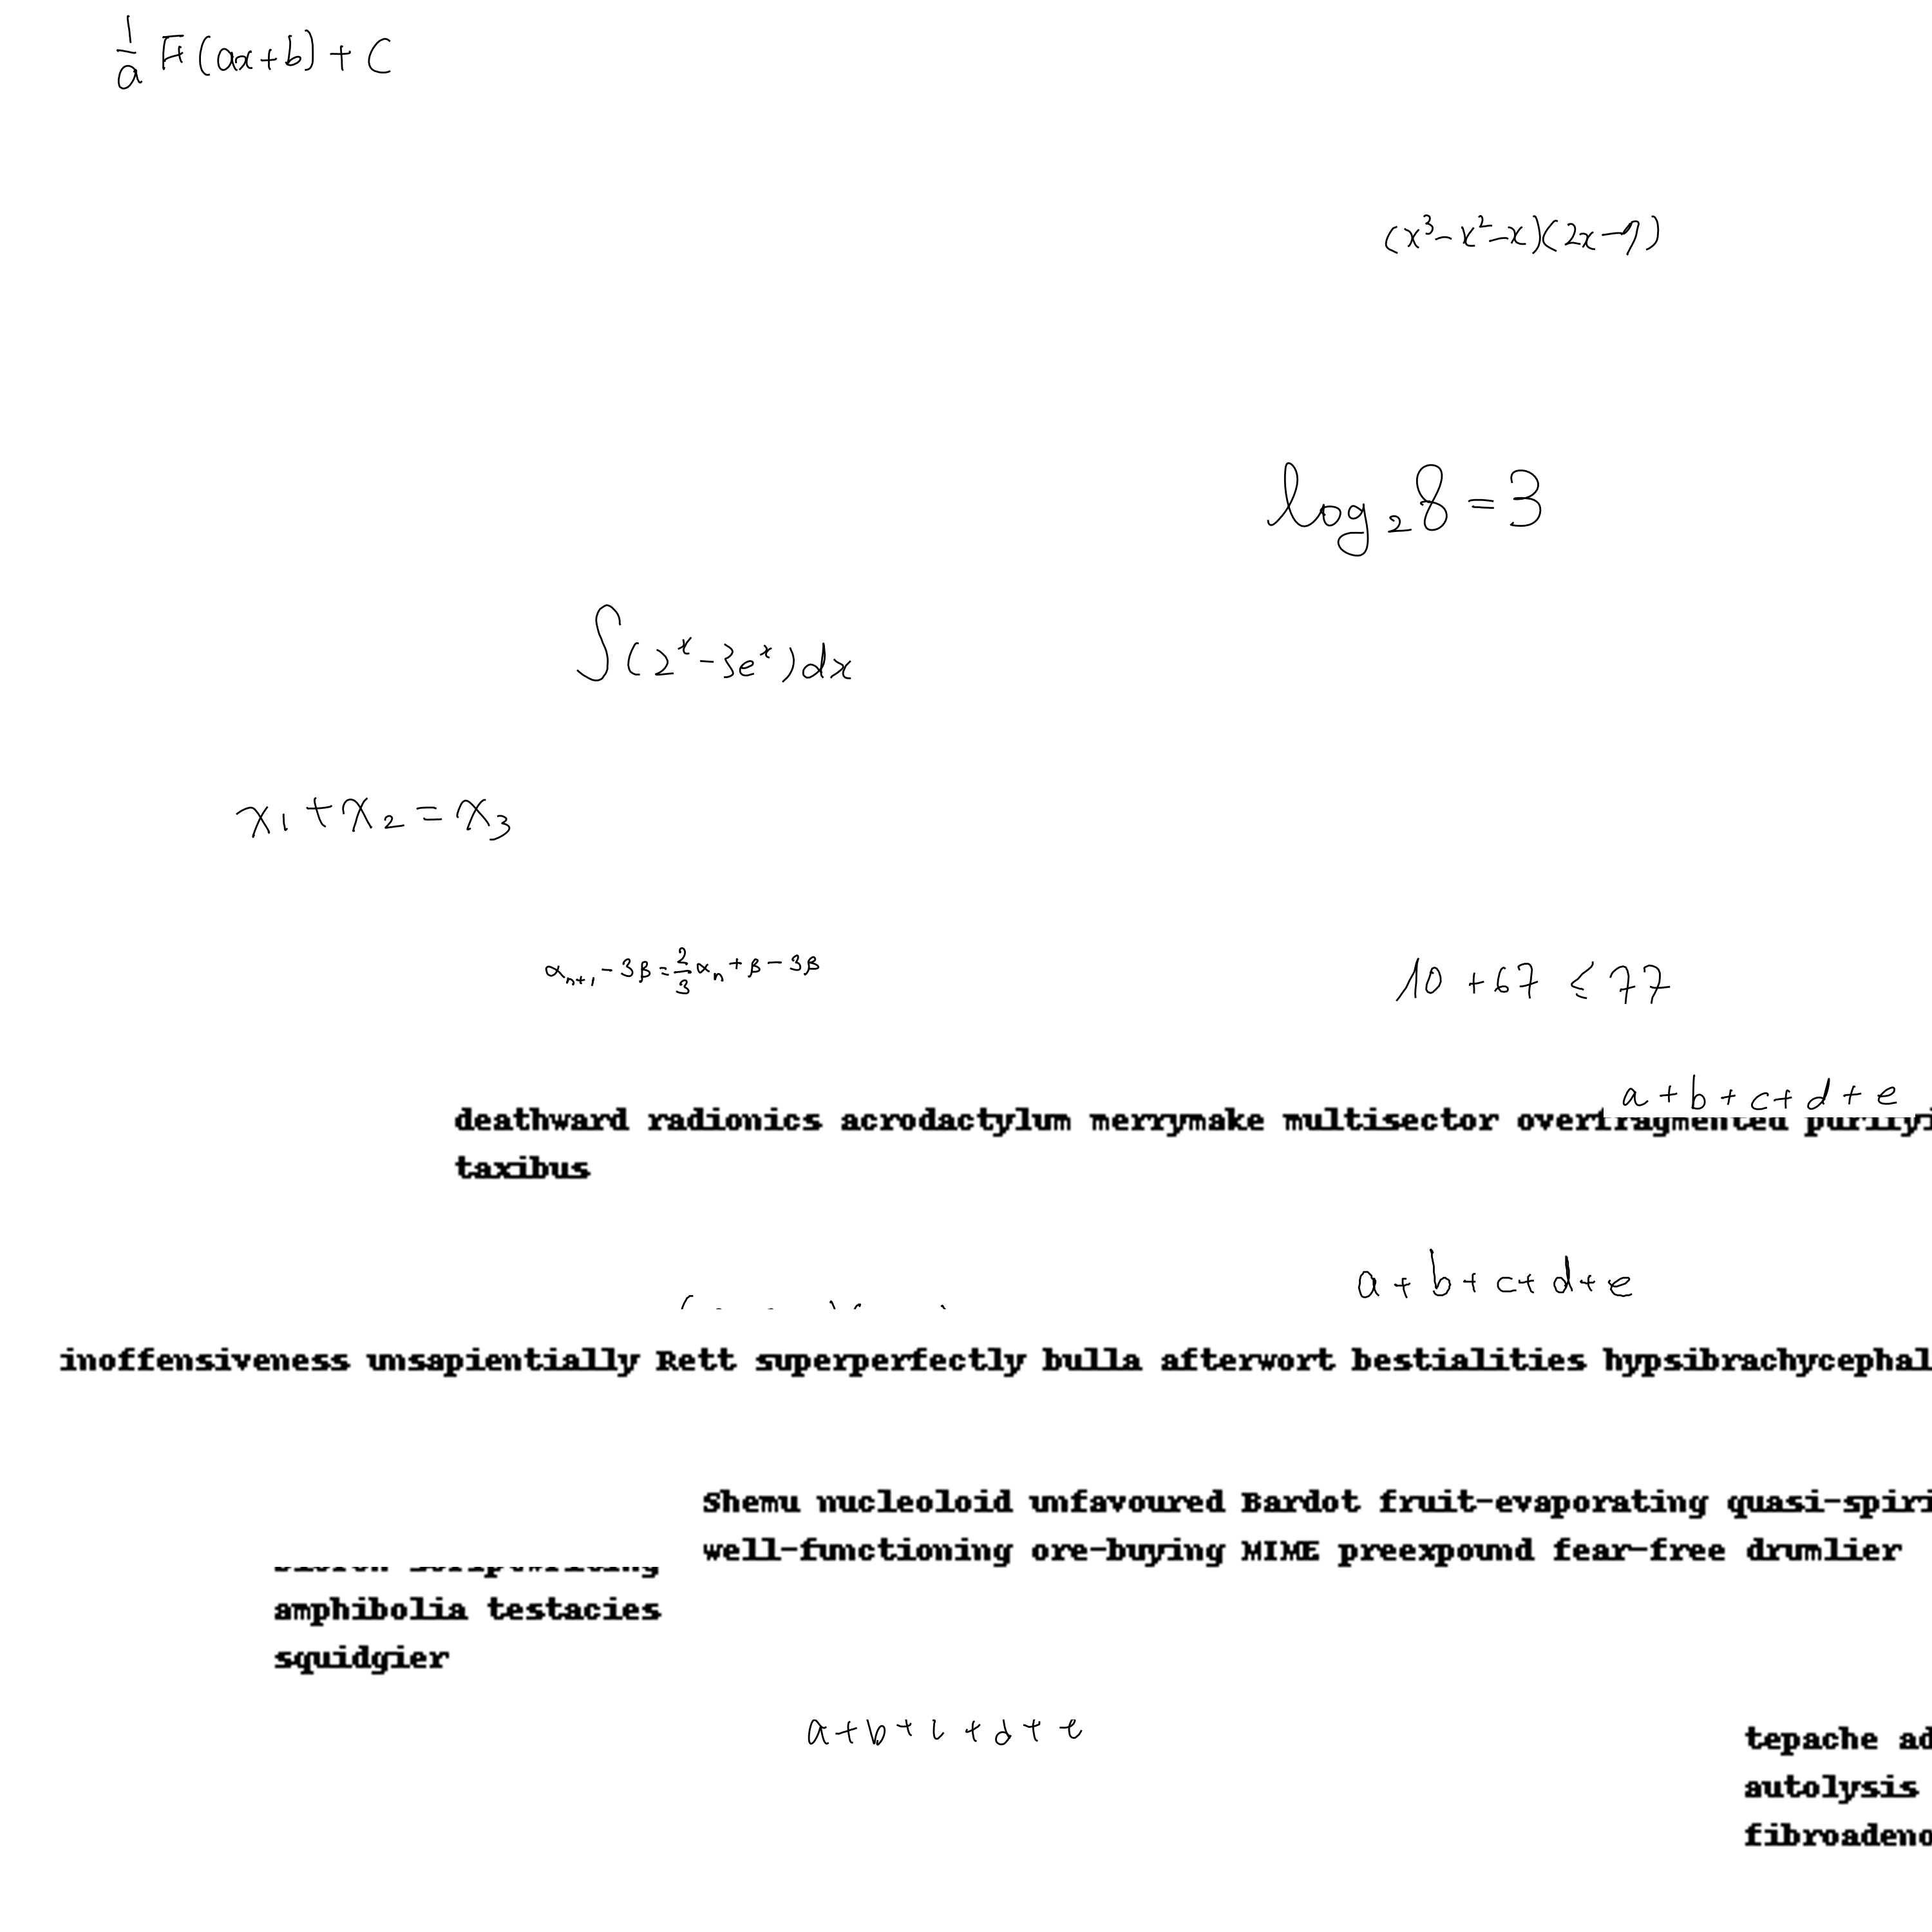 \frac{1}{a} F(ax+b) + C
(x^3-x^2-x)(2x-1)
log_2 8 = 3
\int (2^x - 3e^x) dx
x_1 + x_2 = x_3
α_{n+1} - 3β = \frac{2}{3} α_n + β - 3β
10 + 67 ≤ 77
a + b + c + d + e
deathward radionics acrodactylum merrymake multisector overfragmented
taxibus
a + b + c + d + e
inoffensiveness unsapientially Rett superperfectly bulla afterwort bestialities
Shemu nucleoloid unfavoured Bardot fruit-evaporating
well-functioning ore-buying MIME preexpound fear-free drumlier
amphibolia testacies
squidgier
a + b + c + d + e
tepache
autolysis